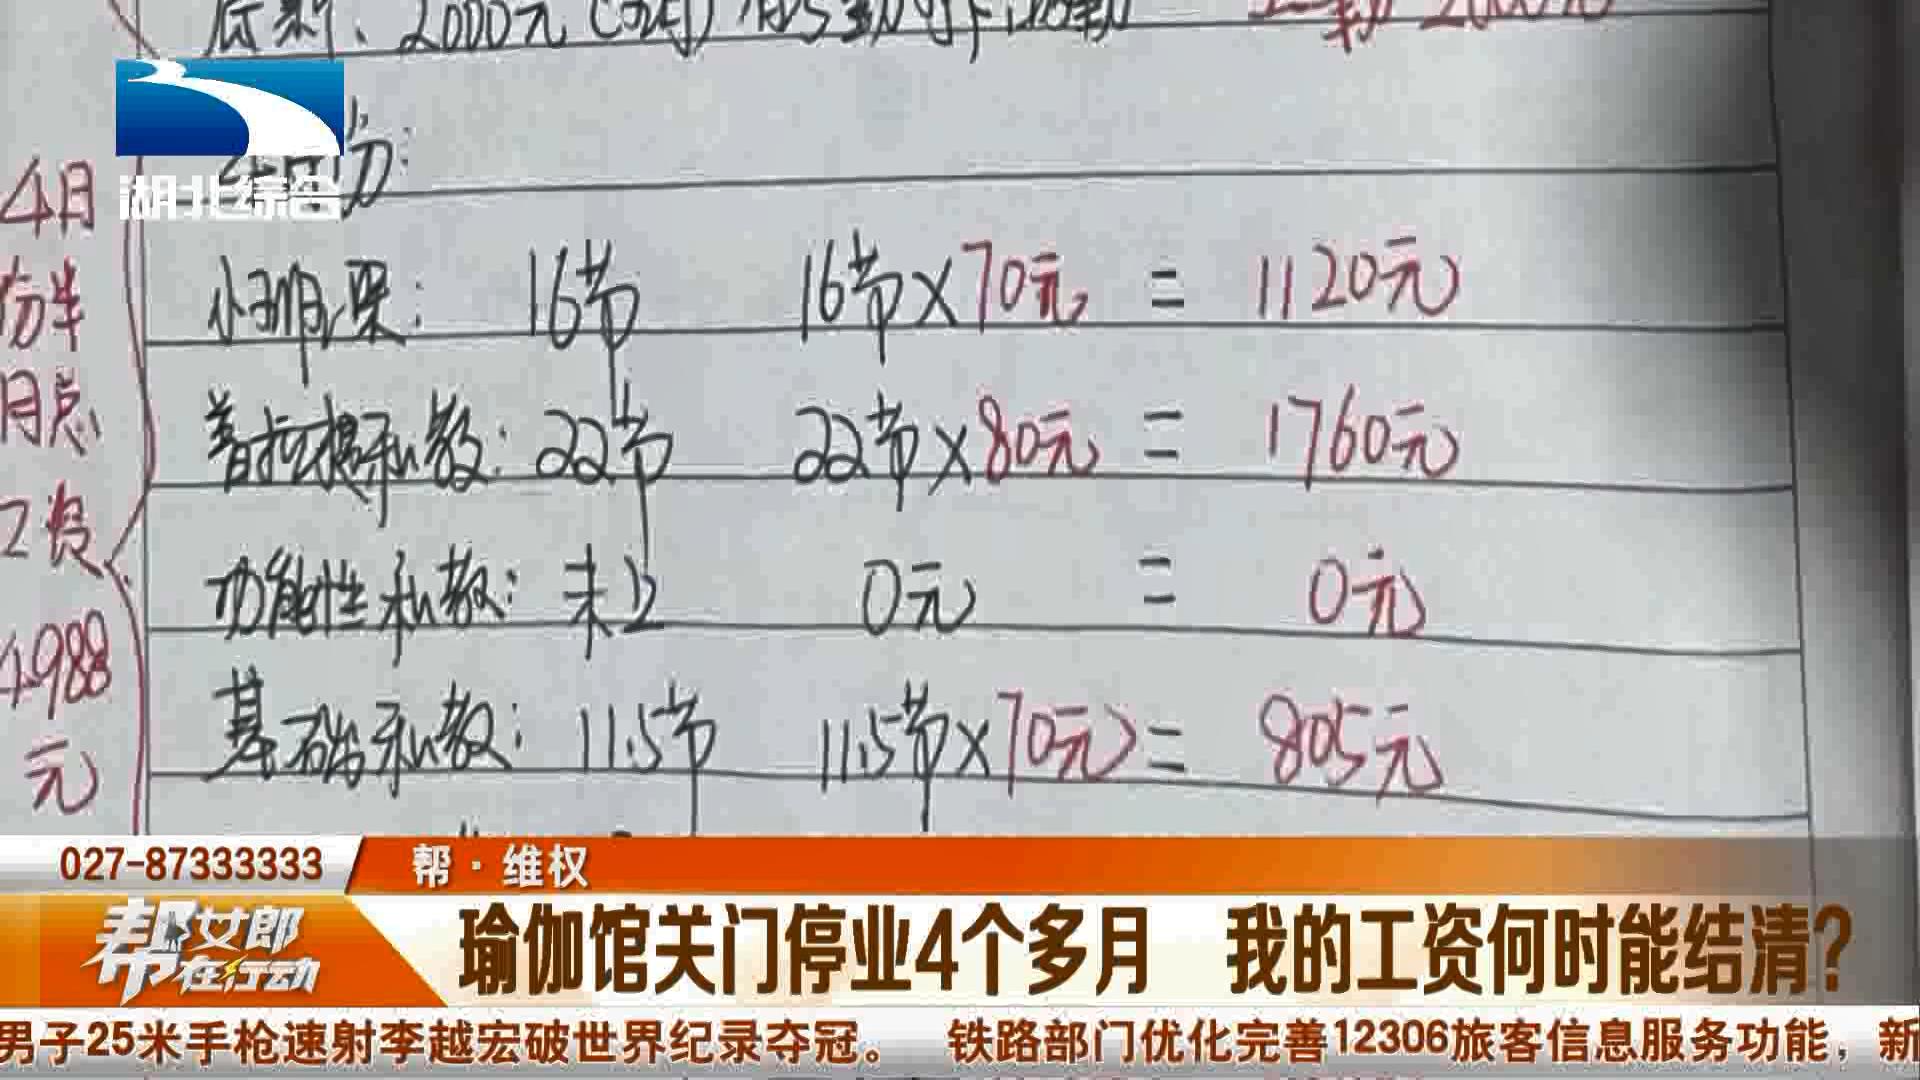 2000元
湖北综合
4月
份半
月总
工资
4988
元
小班课: 16节 16节×70元 = 1120元
普拉提私教: 22节 22节×80元 = 1760元
功能性私教: 未上 0元 = 0元
基础私教: 11.5节 11.5节×70元 = 805元
027-87333333 帮·维权
帮女郎在行动
瑜伽馆关门停业4个多月 我的工资何时能结清?
男子25米手枪速射李越宏破世界纪录夺冠。 铁路部门优化完善12306旅客信息服务功能，新